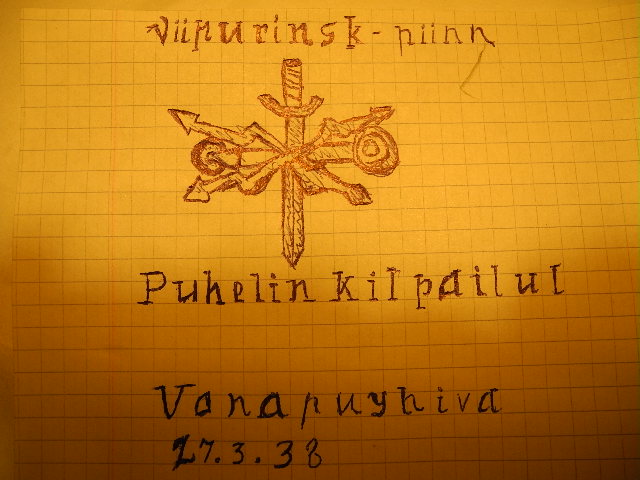 Viipurinsk-piinn
Puhelin kilpailul
Vanapuyhiva
27.3.38